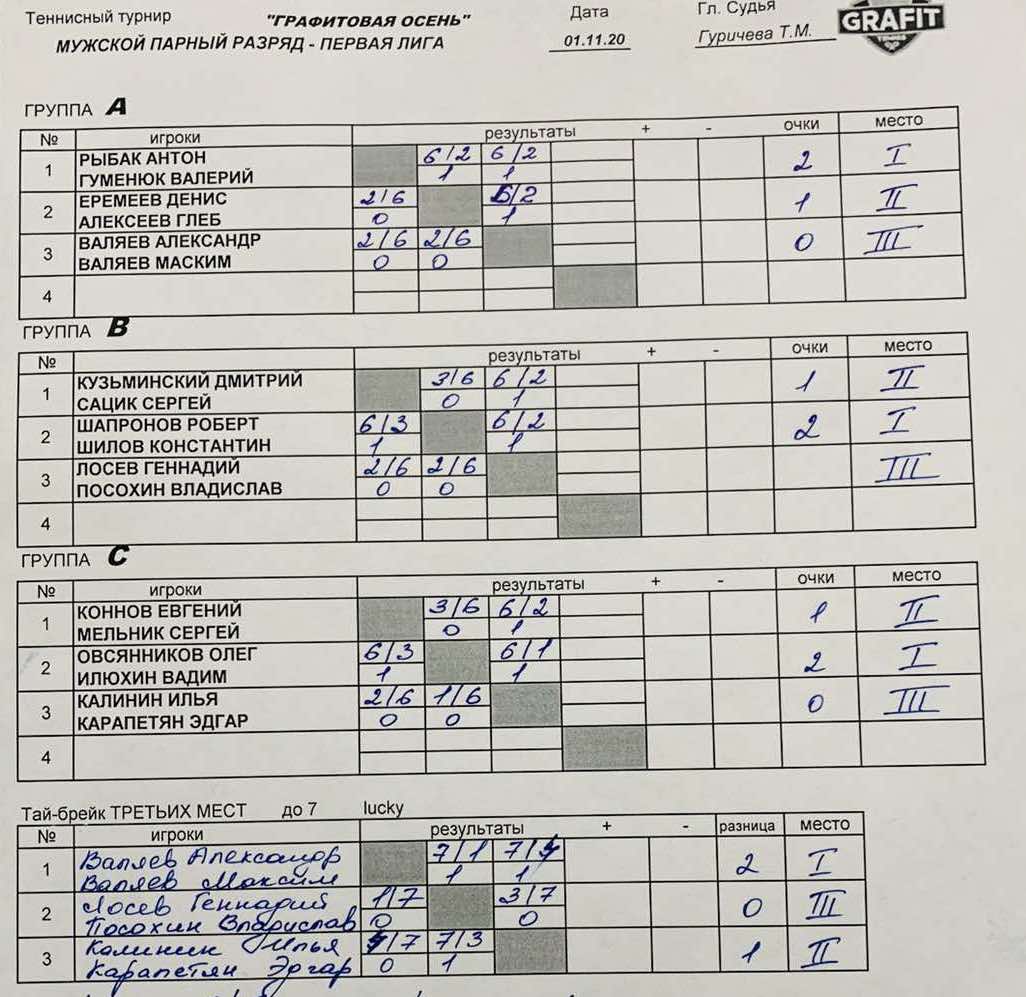 Теннисный турнир "ГРАФИТОВАЯ ОСЕНЬ" Дата Гл. Судья GRAFIT
МУЖСКОЙ ПАРНЫЙ РАЗРЯД - ПЕРВАЯ ЛИГА 01.11.20 Гуричева Т.М.
ГРУППА A
№ игроки результаты + - очки место
1 РЫБАК АНТОН 6/2 6/2 2 I
ГУМЕНЮК ВАЛЕРИЙ 1 1
2 ЕРЕМЕЕВ ДЕНИС 2/6 6/2 1 II
АЛЕКСЕЕВ ГЛЕБ 0 1
3 ВАЛЯЕВ АЛЕКСАНДР 2/6 2/6 0 III
ВАЛЯЕВ МАСКИМ 0 0
4
ГРУППА B
№ результаты + - очки место
1 КУЗЬМИНСКИЙ ДМИТРИЙ 3/6 6/2 1 II
САЦИК СЕРГЕЙ 0 1
2 ШАПРОНОВ РОБЕРТ 6/3 6/2 2 I
ШИЛОВ КОНСТАНТИН 1 1
3 ЛОСЕВ ГЕННАДИЙ 2/6 2/6 III
ПОСОХИН ВЛАДИСЛАВ 0 0
4
ГРУППА C
№ игроки результаты + - очки место
1 КОННОВ ЕВГЕНИЙ 3/6 6/2 1 II
МЕЛЬНИК СЕРГЕЙ 0 1
2 ОВСЯННИКОВ ОЛЕГ 6/3 6/1 2 I
ИЛЮХИН ВАДИМ 1 1
3 КАЛИНИН ИЛЬЯ 2/6 1/6 0 III
КАРАПЕТЯН ЭДГАР 0 0
4
Тай-брейк ТРЕТЬИХ МЕСТ до 7 lucky
№ игроки результаты + - разница место
1 Валяев Александр 7/1 2 I
Валяев Максим 1 1
2 Лосев Геннадий 1/7 3/7 0 III
Посохин Владислав 0 0
3 Калинин Илья 7/3 1 II
Карапетян Эдгар 0 1